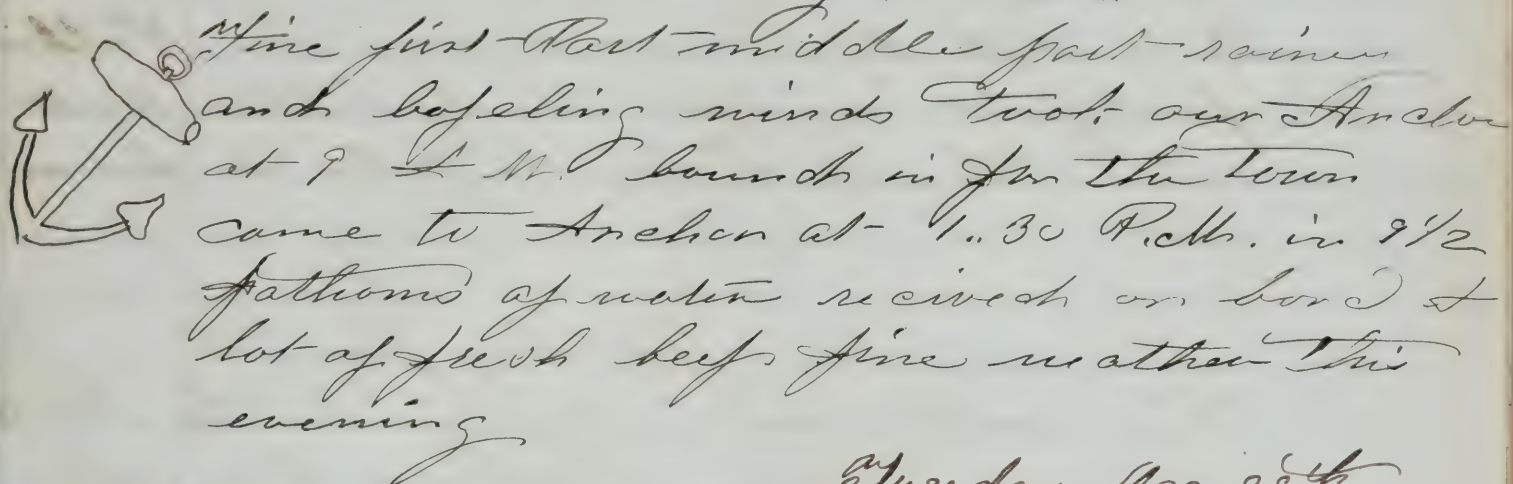 Fine first Part middle part rainey
and bafeling winds Took our Anchor
at 9 A M. bound in for the Town
came to Anchor at 1..30 P.M. in 9 1/2
fathoms of water recived on bord A
lot of fresh beef fine weather this
evening